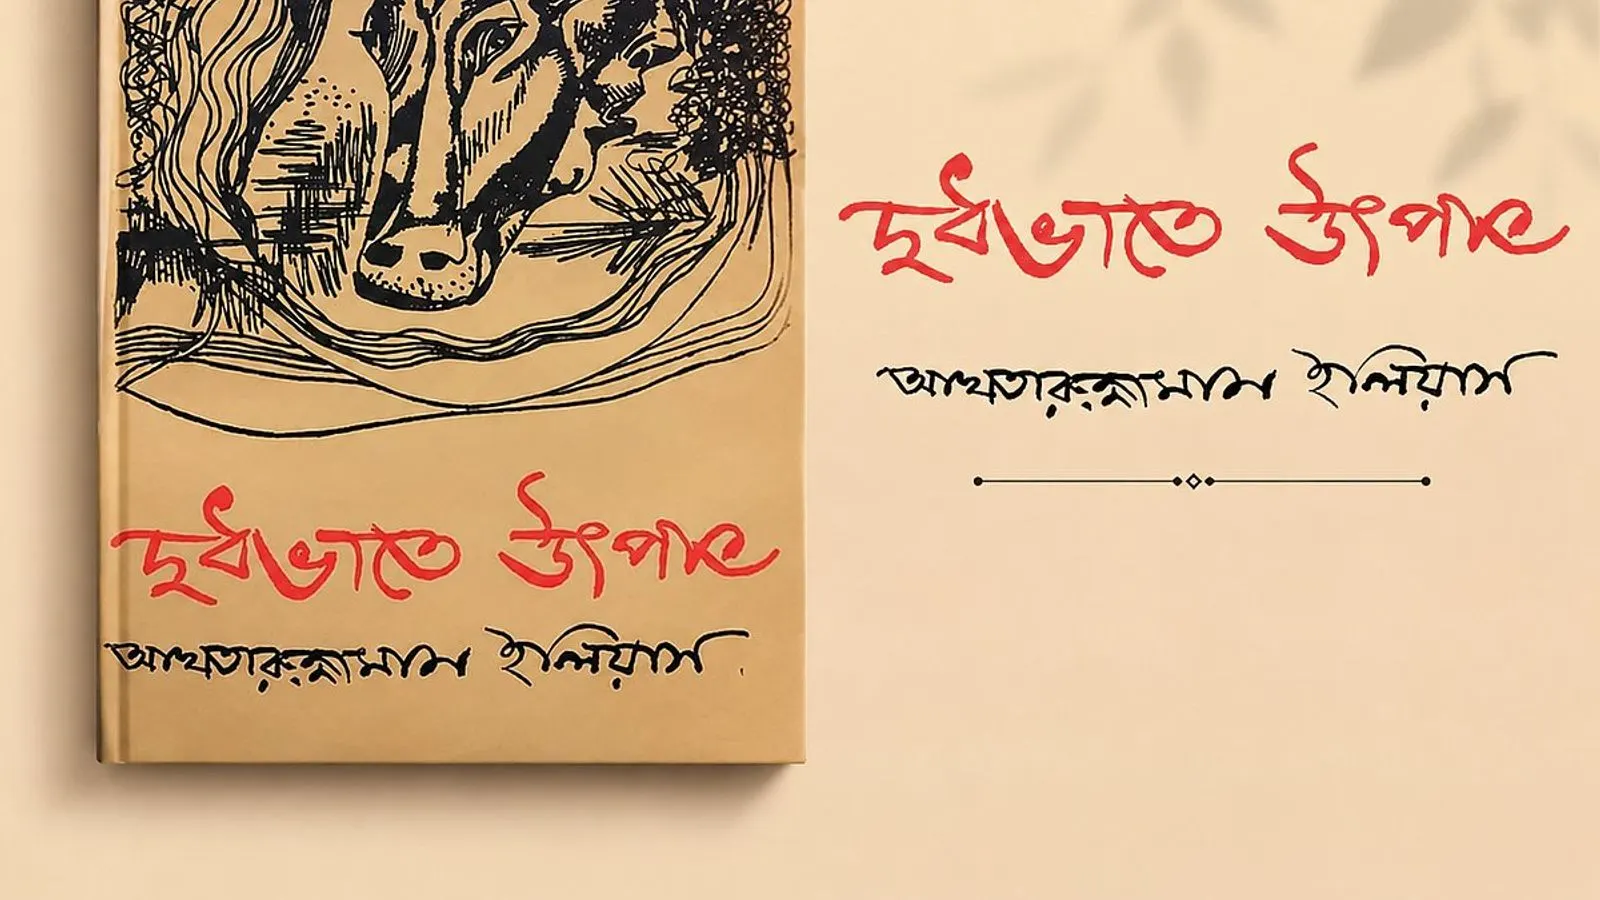 দুধভাতে উৎপাত
আখতারুজ্জামান ইলিয়াস
দুধভাতে উৎপাত
আখতারুজ্জামান ইলিয়াস